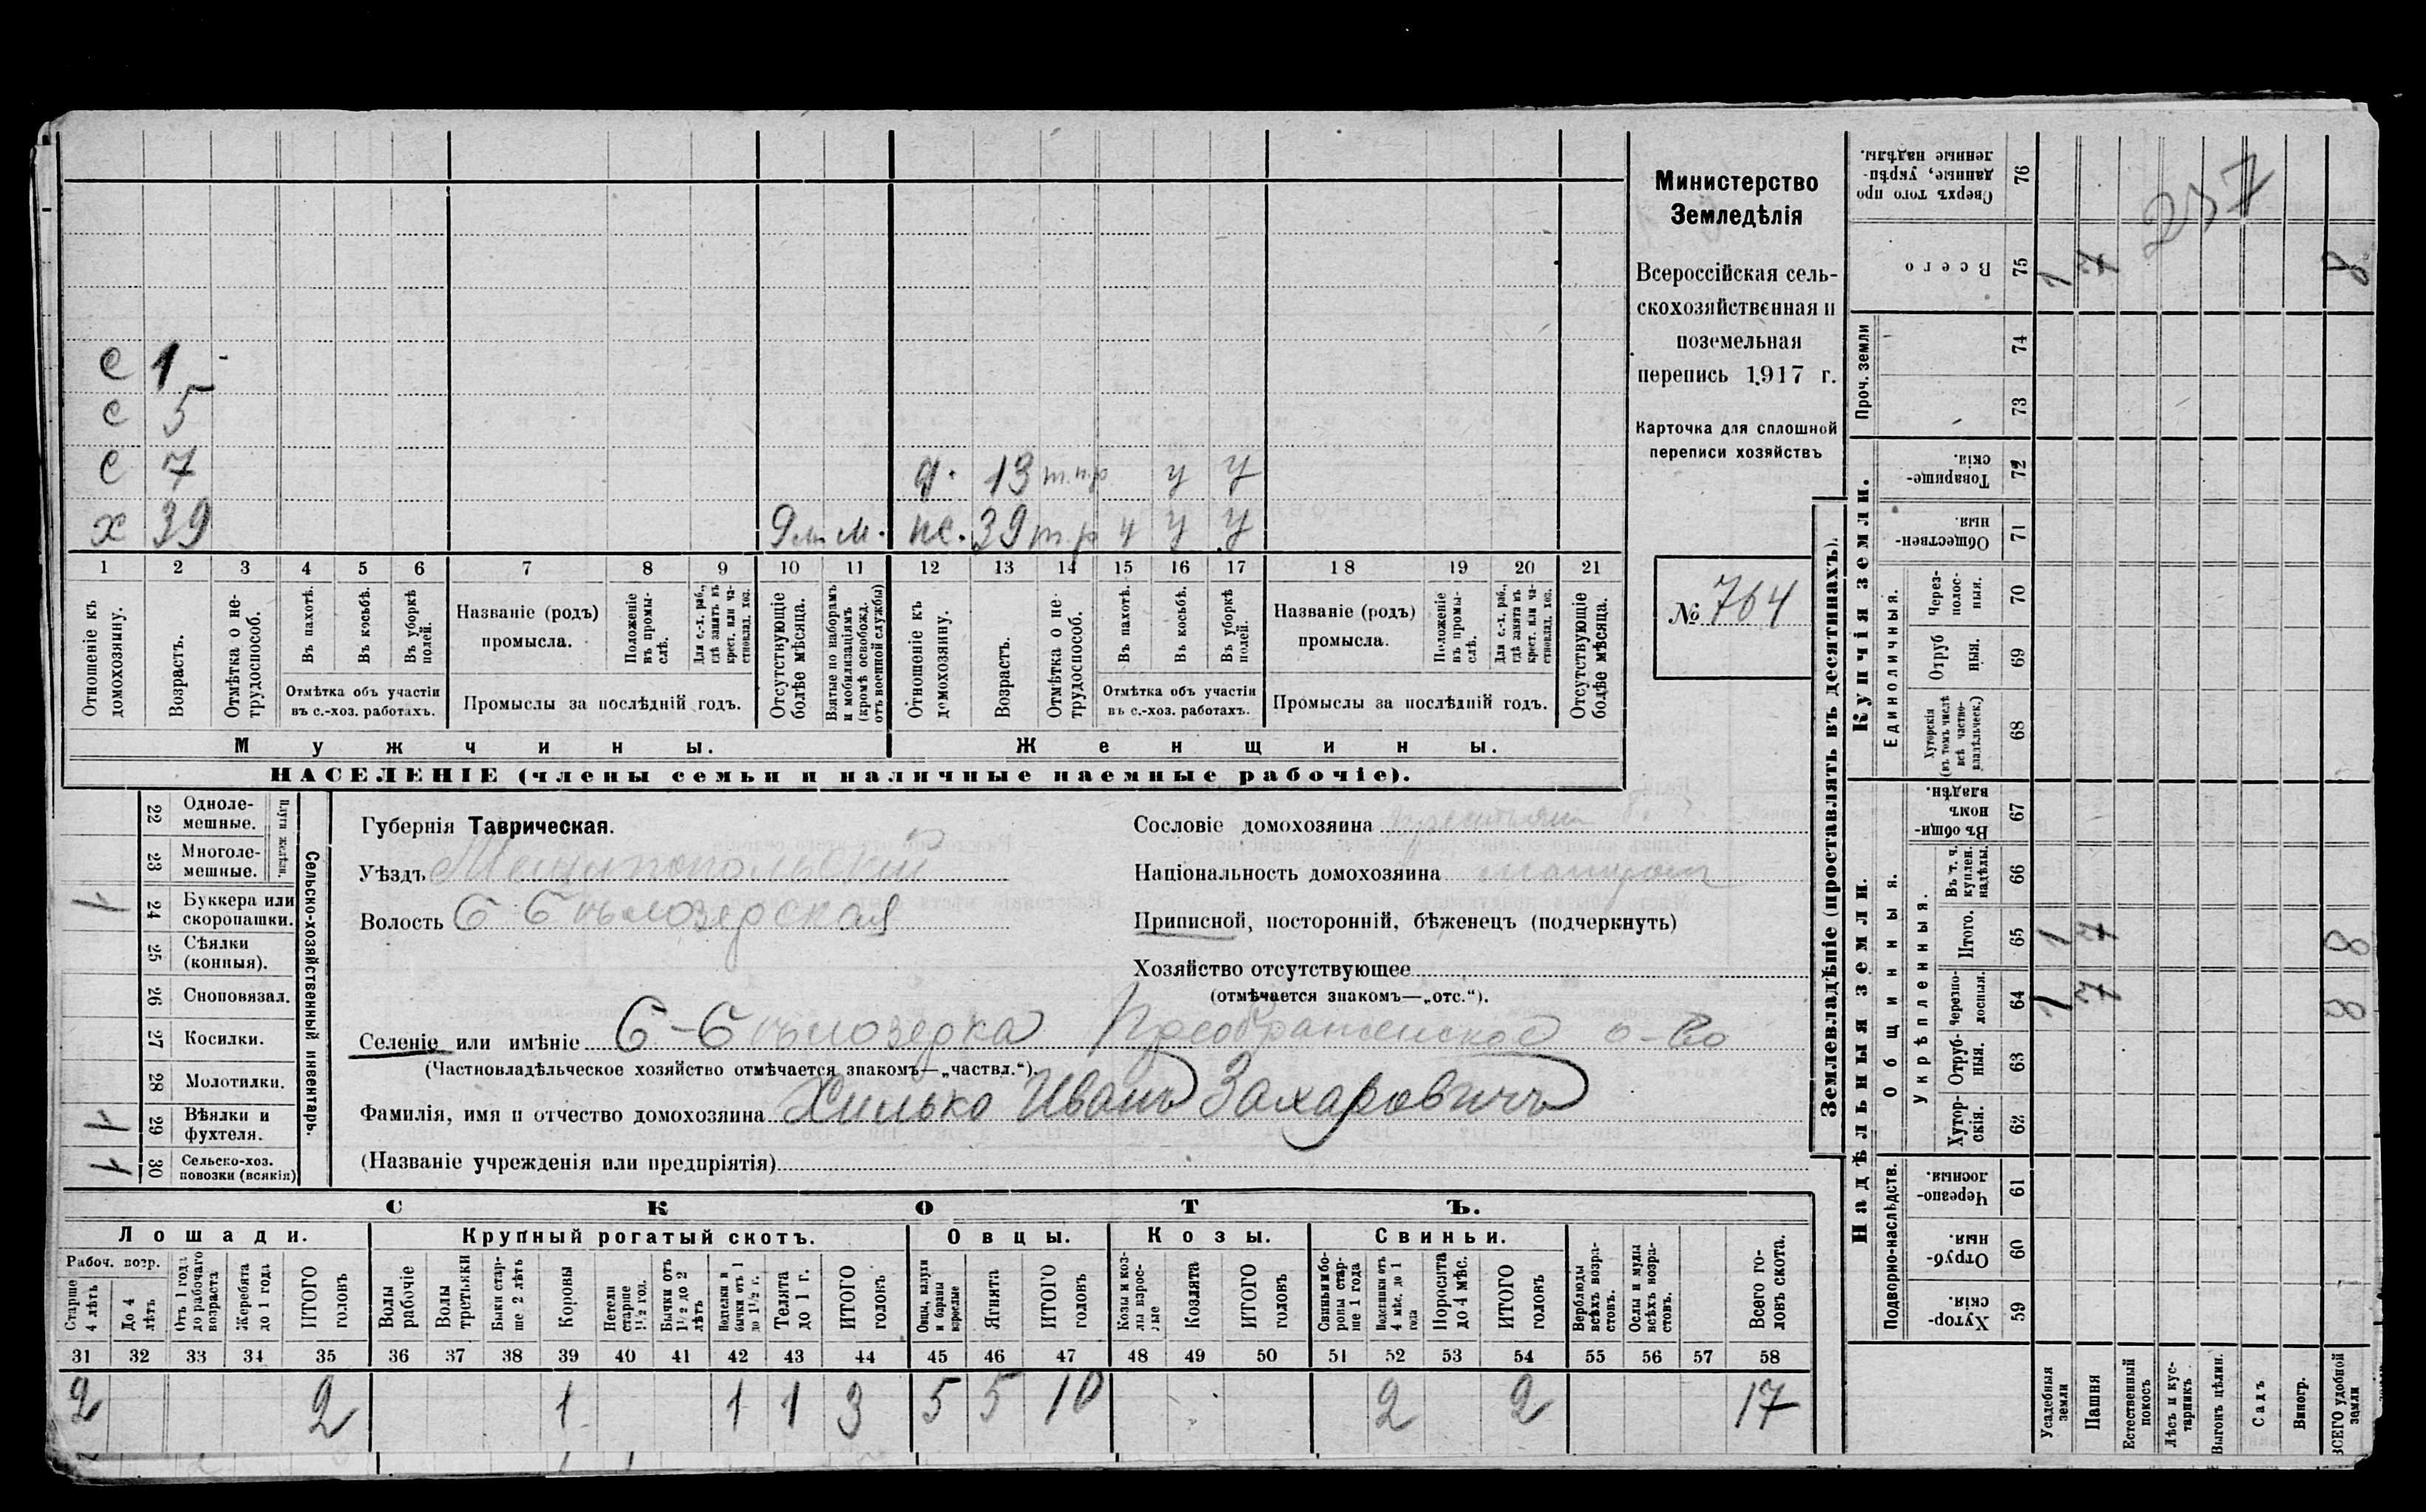 Министерство
Земледѣлія
Всероссійская сель-
скохозяйственная и
поземельная
перепись 1917 г.
Карточка для сплошной
переписи хозяйствъ
№ 764
с 1
с 5
с 7 д. 13 у у
х 39 м. ж. 39 т. р ч у у
1 2 3 4 5 6 7 8 9 10 11 12 13 14 15 16 17 18 19 20 21
Отношеніе къ домохозяину.
Возрастъ.
Отмѣтка о не-трудоспособ.
Въ пахотѣ.
Въ косьбѣ.
Въ уборкѣ полей.
Отмѣтка объ участіи
въ с.-хоз. работахъ.
Названіе (родъ)
промысла.
Положеніе въ промы-слѣ.
Для с.-х. раб., гдѣ занятъ въ крест. или ча-стновлад. хоз.
Промыслы за послѣдній годъ.
Отсутствующіе болѣе мѣсяца.
Взятые по наборамъ и мобилизаціямъ (кромѣ освобожд. отъ военной службы)
Отношеніе къ домохозяину.
Возрастъ.
Отмѣтка о не-трудоспособ.
Въ пахотѣ.
Въ косьбѣ.
Въ уборкѣ полей.
Отмѣтка объ участіи
въ с.-хоз. работахъ.
Названіе (родъ)
промысла.
Положеніе въ промы-слѣ.
Для с.-х. раб., гдѣ занята въ крест. или ча-стновлад. хоз.
Промыслы за послѣдній годъ.
Отсутствующіе болѣе мѣсяца.
Мужчины. Женщины.
НАСЕЛЕНІЕ (члены семьи и наличные наемные рабочіе).
Сельско-хозяйственный инвентарь.
Плуги желѣзн.
22 Одноле-мешные.
23 Многоле-мешные.
1 24 Буккера или скоропашки.
25 Сѣялки (конныя).
26 Сноповязал.
27 Косилки.
28 Молотилки.
29 Вѣялки и фухтеля.
30 Сельско-хоз. повозки (всякія)
Губернія Таврическая.
Уѣздъ Мелитопольскій
Волость Б Бѣлозерская
Сословіе домохозяина
Національность домохозяина малорос
Приписной, посторонній, бѣженецъ (подчеркнуть)
Хозяйство отсутствующее
(отмѣчается знакомъ—„отс.“).
Селеніе или имѣніе Б-Бѣлозерка Преображенское о-во
(Частновладѣльческое хозяйство отмѣчается знакомъ—„частвл.“).
Фамилія, имя и отчество домохозяина Хилько Иванъ Захаровичъ
(Названіе учрежденія или предпріятія)
СКОТЪ.
Лошади. Крупный рогатый скотъ. Овцы. Козы. Свиньи.
Рабоч. возр.
Старше 4 лѣтъ
До 4 лѣтъ
Отъ 1 года до рабочаго возраста
Жеребята до 1 года
ИТОГО головъ
Волы рабочіе
Волы третьяки
Быки стар-ше 2 лѣтъ
Коровы
Нетели старше 1½ год.
Бычки отъ 1½ до 2 лѣтъ
Нетелки и бычки отъ 1 до 1½ г.
Телята до 1 г.
ИТОГО головъ
Овцы, валухи и бараны взрослые
Ягнята
ИТОГО головъ
Козы и коз-лы взрос-лые
Козлята
ИТОГО головъ
Свиньи и бо-ровы стар-ше 1 года
Подсвинки отъ 4 мѣс. до 1 года
Поросята до 4 мѣс.
ИТОГО головъ
Верблюды всѣхъ возра-стовъ.
Ослы и мулы всѣхъ возра-стовъ.
Всего го-ловъ скота.
31 32 33 34 35 36 37 38 39 40 41 42 43 44 45 46 47 48 49 50 51 52 53 54 55 56 57 58
2 2 1 1 1 3 5 5 10 2 2 17
Землевладѣніе (проставлять въ десятинахъ).
Надѣльныя земли.
Купчія земли.
Проч. земли
Подворно-наслѣдств.
Общинныя.
Укрѣпленныя.
Единоличныя.
Сверхъ того про данные, укрѣп-ленные надѣлы. 76
Всего 75 1 7 8
237
74
73
Товарище-скія. 72
Обществен-ныя. 71
Через-полос-ныя. 70
Отруб ныя. 69
Хуторскія (въ томъ числѣ всѣ частно-владѣльческ.) 68
Въ общи-номъ владѣн. 67
Въ т. ч. куплен. надѣлы. 66
Итого. 65 1 7 8
Черезпо-лосныя. 64 1 7 8
Отруб-ныя. 63
Хутор-скія. 62
Черезпо-лосныя. 61
Отруб-ныя. 60
Хутор-скія. 59
Усадебныя земли
Пашня
Естественный покосъ
Лѣсъ и кус-тарникъ
Выгонъ цѣлин.
Садъ
Виногр.
ВСЕГО удобной земли